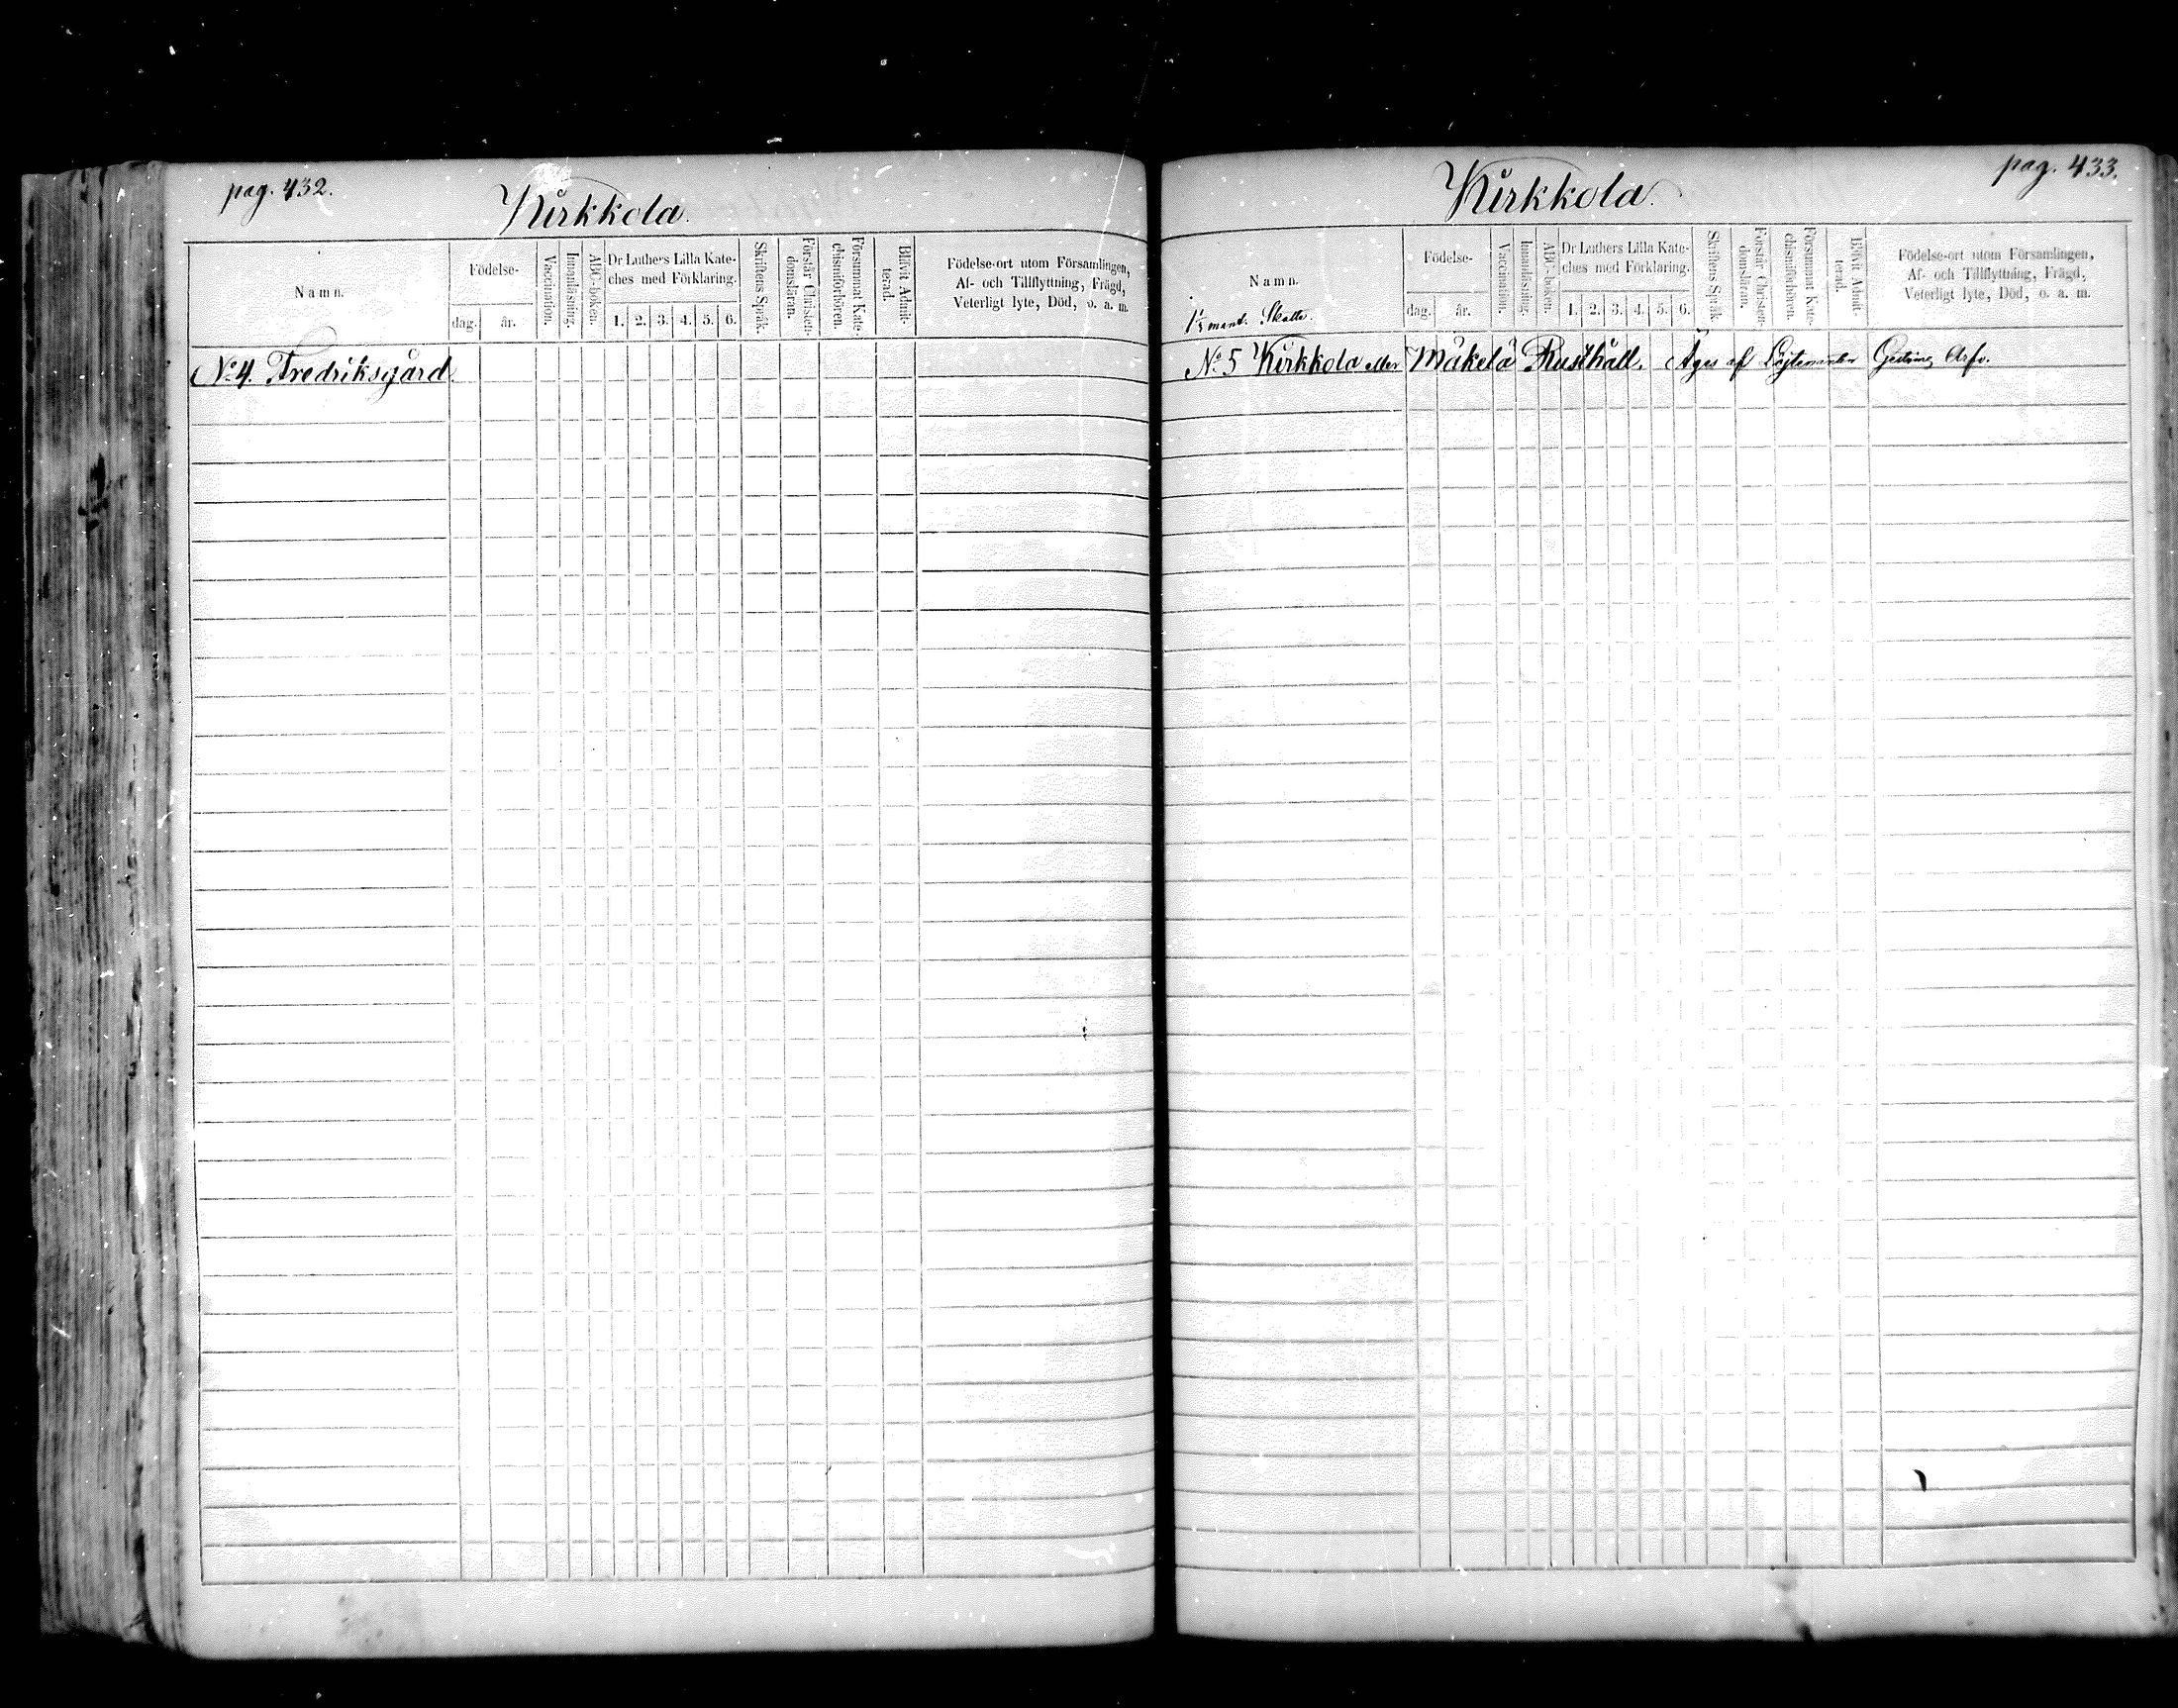 pag. 432.
Kirkkola.
Namn.
Födelse-
dag.
år.
Vaccination.
Innanläsning.
ABC-boken.
Dr Luthers Lilla Kate-
ches med Förklaring.
1. 2. 3. 4. 5. 6.
Skriftens Språk.
Förstår Christen-
domsläran.
Försummat Kate-
chismiförhören.
Blifvit Admit-
terad.
Födelse-ort utom Församlingen,
Af- och Tillflyttning, Frägd,
Veterligt lyte, Död, o. a. m.
No 4. Fredriksgård
pag. 433.
Kirkkola.
Namn.
mant. Skatte.
Födelse-
dag.
år.
Vaccination.
Innanläsning.
ABC-boken.
Dr Luthers Lilla Kate-
ches med Förklaring.
1. 2. 3. 4. 5. 6.
Skriftens Språk.
Förstår Christen-
domsläran.
Försummat Kate-
chismiförhören.
Blifvit Admit-
terad.
Födelse-ort utom Församlingen,
Af- och Tillflyttning, Frägd,
Veterligt lyte, Död, o. a. m.
No 5 Kirkkola eller Mäkelä Rusthåll. Äges af Löjtenanten Arfv.